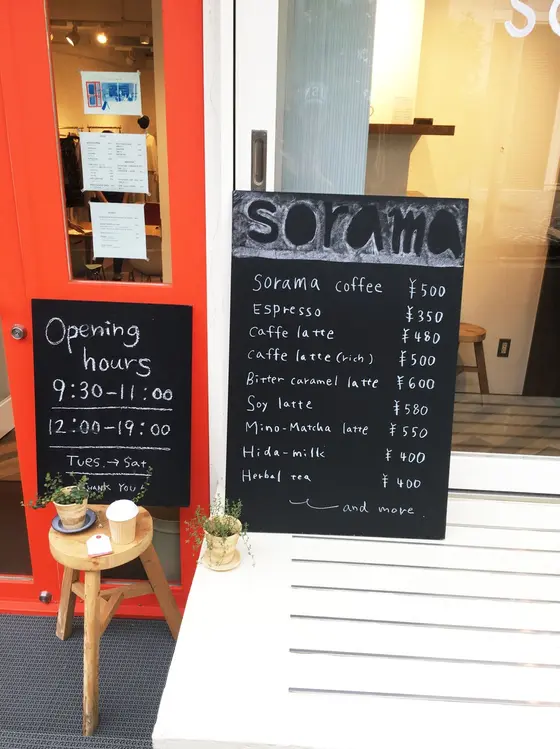 Opening
hours
9:30-11:00
12:00-19:00
Tues.→Sat.
THANK YOU
sorama
Sorama coffee ¥500
ESPRESSO ¥350
Caffe latte ¥480
Caffe latte (rich) ¥500
Bitter caramel latte ¥600
Soy latte ¥580
Mino-Matcha latte ¥550
Hida-milk ¥400
Herbal tea ¥400
and more.